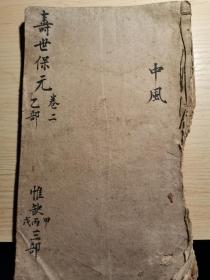 中風
壽世保元 卷二
乙部
惟缺甲丙戊三部